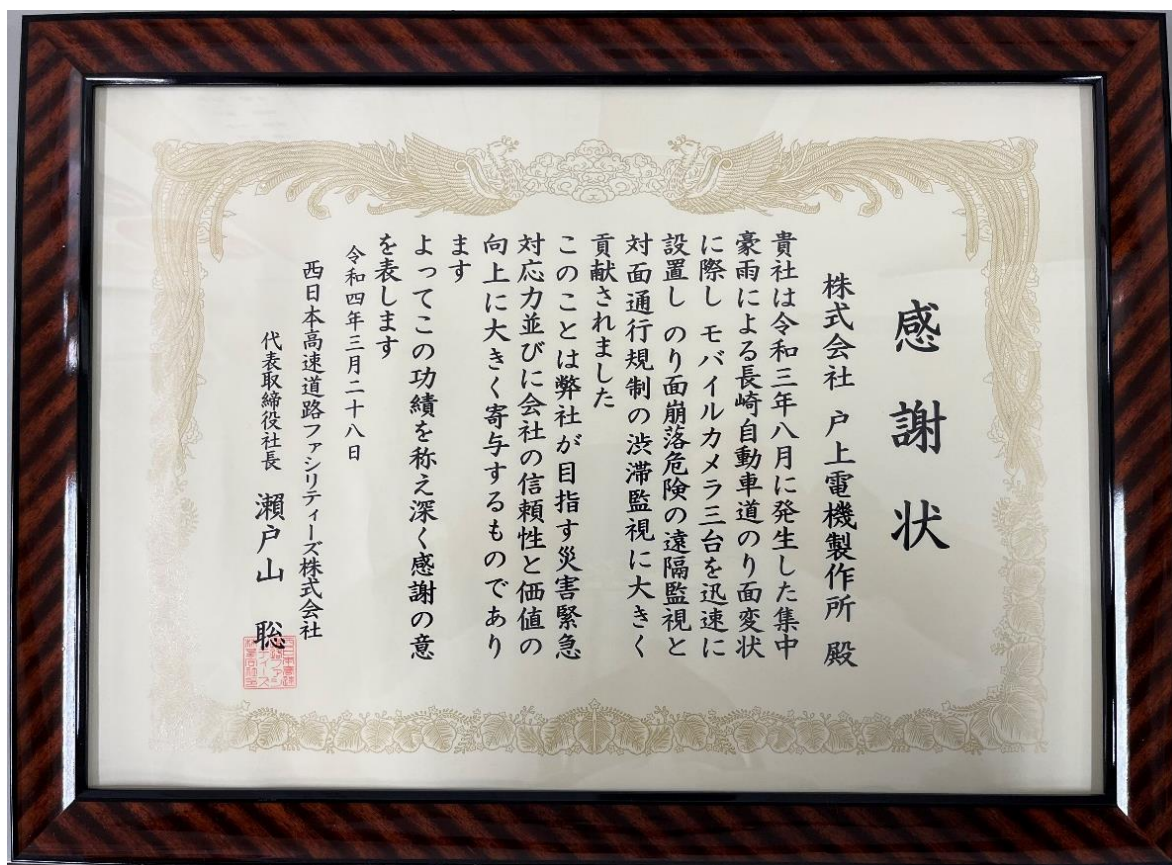 感謝状
株式会社 戸上電機製作所 殿
貴社は令和三年八月に発生した集中
豪雨による長崎自動車道のり面変状
に際し モバイルカメラ三台を迅速に
設置し のり面崩落危険の遠隔監視と
対面通行規制の渋滞監視に大きく
貢献されました
このことは弊社が目指す災害緊急
対応力並びに会社の信頼性と価値の
向上に大きく寄与するものであり
ます
よってこの功績を称え深く感謝の意
を表します
令和四年三月二十八日
西日本高速道路ファシリティーズ株式会社
代表取締役社長 瀬戸山 聡